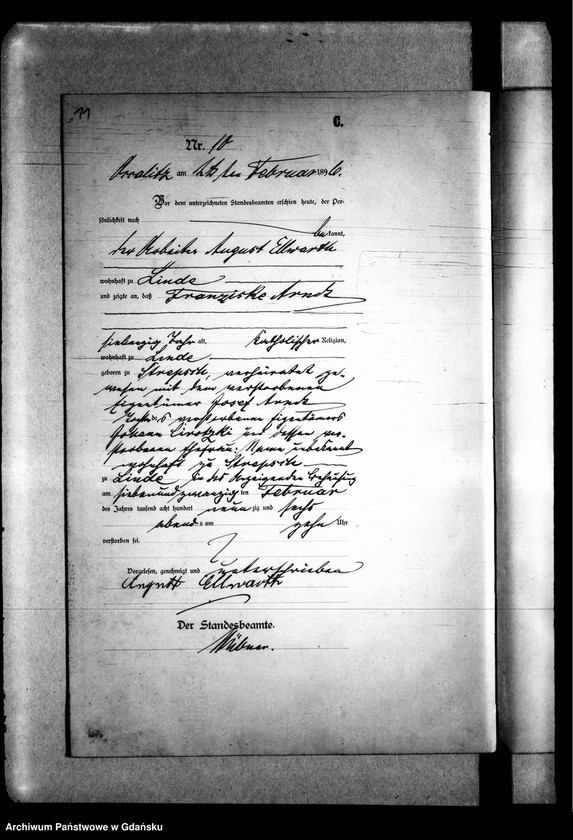 11
C.
Nr. 10
am ten Februar 1896.
Vor dem unterzeichneten Standesbeamten erschien heute, der Per-
sönlichkeit nach
be kannt,
der Arbeiter August Ellwarth
wohnhaft zu Linde
und zeigte an, daß Franziska Arndt
siebenzig Jahr alt, katholischer Religion,
wohnhaft zu Linde
geboren zu Strepsch, verheiratet ge-
wesen mit dem verstorbenen
Eigentümer Josef Arndt
Tochter des verstorbenen Eigentümers
Johann und dessen ver-
storbenen Ehefrau, Name unbekannt
wohnhaft zu Strepsch
zu Linde in des Anzeigenden Behausung
am siebenundzwanzigsten Februar
des Jahres tausend acht hundert neun zig und sechs
abends um zehn Uhr
verstorben sei.
Vorgelesen, genehmigt und unterschrieben
August Ellwarth
Der Standesbeamte.
Archiwum Państwowe w Gdańsku